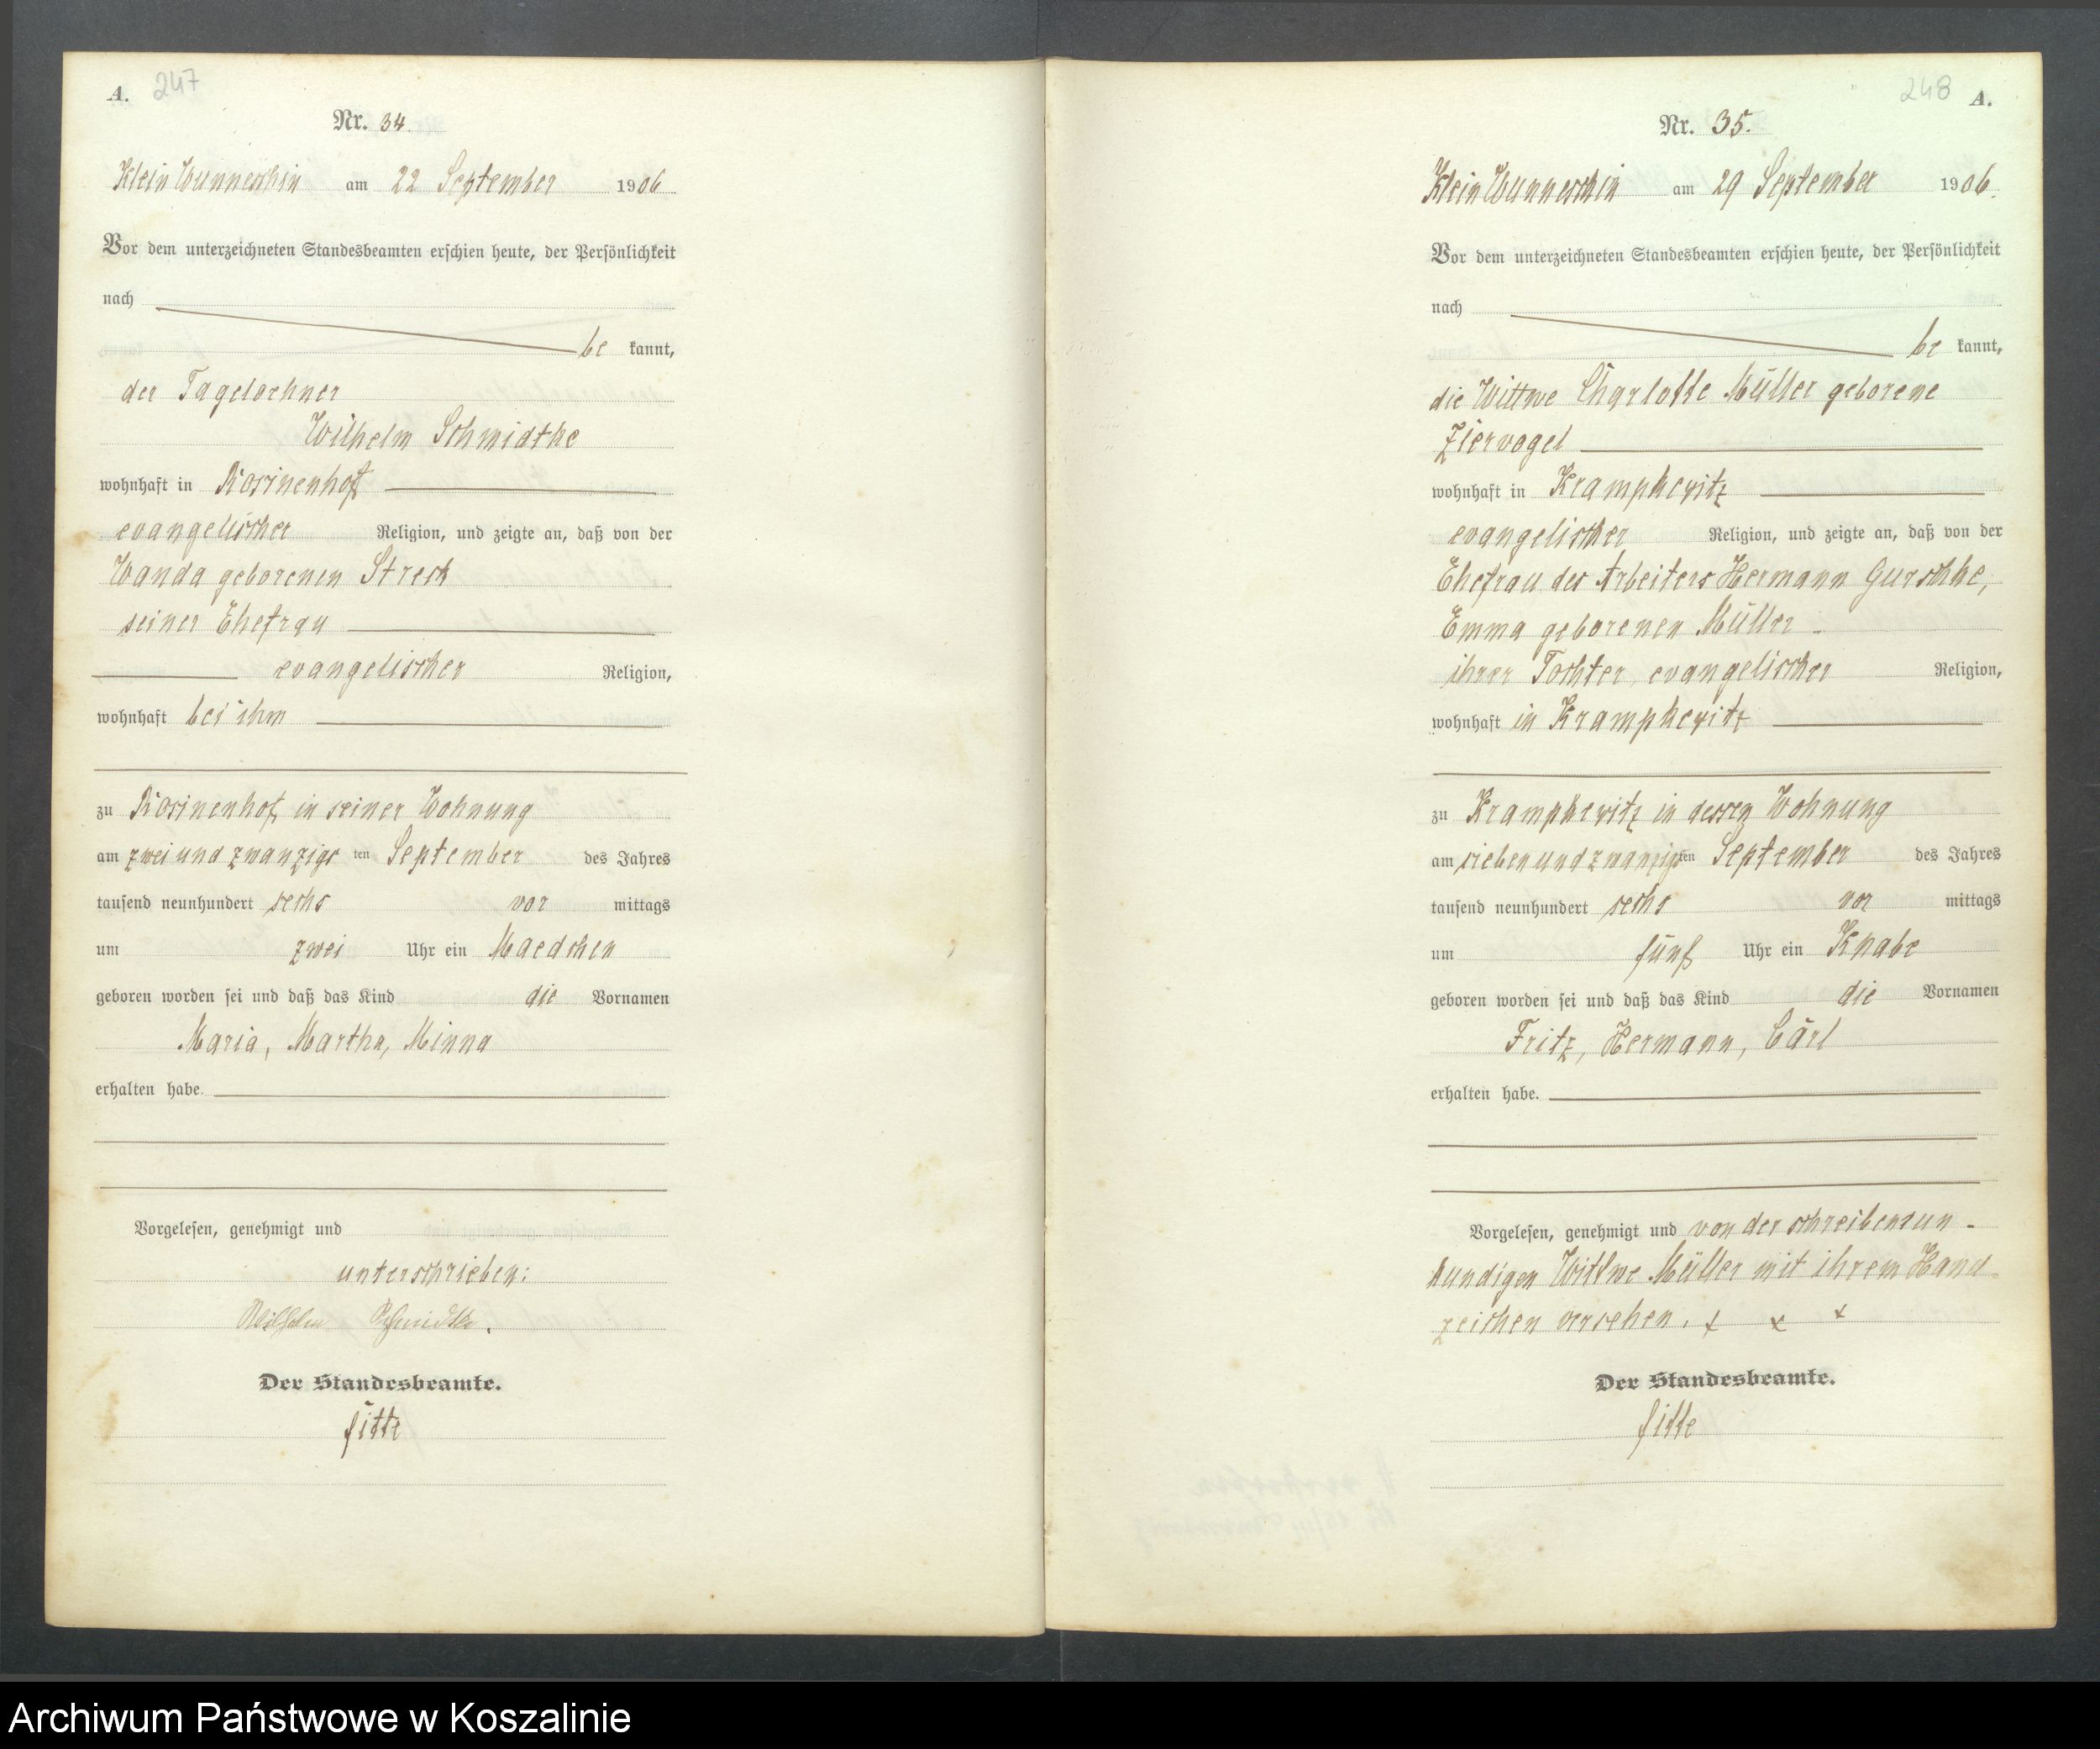 A. 247
Nr. 34.
Klein Wunneschin am 22 September 1906
Vor dem unterzeichneten Standesbeamten erschien heute, der Persönlichkeit
nach
be kannt,
der Tageloehner
Wilhelm Schmidtke
wohnhaft in Rosinenhof
evangelischer Religion, und zeigte an, daß von der
Wanda geborenen Strech
seiner Ehefrau
evangelischer Religion,
wohnhaft bei ihm
zu Rosinenhof, in seiner Wohnung
am zwei und zwanzigs ten September des Jahres
tausend neunhundert sechs vor mittags
um zwei Uhr ein Maedchen
geboren worden sei und daß das Kind die Vornamen
Maria, Martha, Minna
erhalten habe.
Vorgelesen, genehmigt und
unterschrieben:
Wilhelm Schmidtke.
Der Standesbeamte.
fitte
248 A.
Nr. 35.
Klein Wunneschin am 29 September 1906.
Vor dem unterzeichneten Standesbeamten erschien heute, der Persönlichkeit
nach
be kannt,
die Wittwe Charlotte Müller geborene
Ziervogel
wohnhaft in Krampkewitz
evangelischer Religion, und zeigte an, daß von der
Ehefrau des Arbeiters Hermann Gurschke,
Emma geborenen Müller
ihrer Tochter, evangelischer Religion,
wohnhaft in Krampkewitz
zu Krampkewitz in dessen Wohnung
am siebenundzwanzigsten September des Jahres
tausend neunhundert sechs vor mittags
um fünf Uhr ein Knabe
geboren worden sei und daß das Kind die Vornamen
Fritz, Hermann, Carl
erhalten habe.
Vorgelesen, genehmigt und von der schreibensun-
kundigen Wittwe Müller mit ihrem Hand-
zeichen versehen. x x x
Der Standesbeamte.
fitte
Archiwum Państwowe w Koszalinie